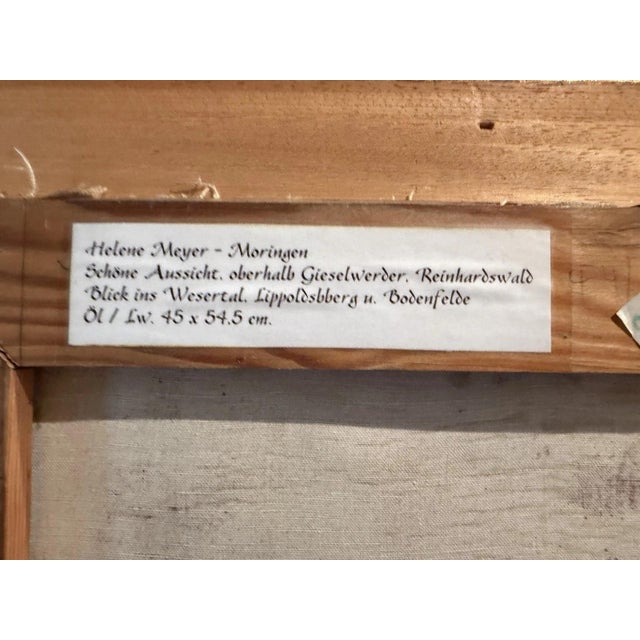 Helene Meyer - Moringen
Schöne Aussicht, oberhalb Gieselwerder, Reinhardswald
Blick ins Wesertal, Lippoldsbberg u. Bodenfelde
Öl / Lw. 45 x 54,5 cm.